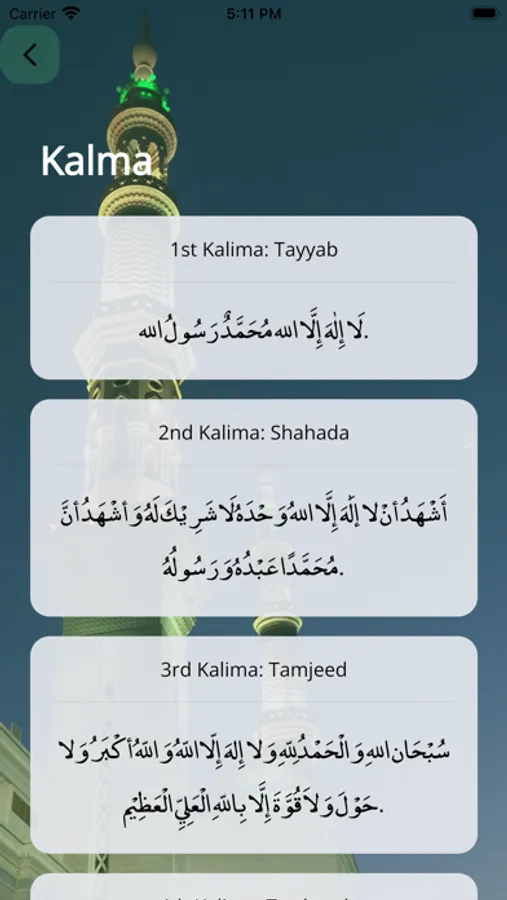 Carrier 5:11 PM
Kalma
1st Kalima: Tayyab
لَا إِلٰهَ إِلَّا الله مُحَمَّدٌ رَسُولُ الله.
2nd Kalima: Shahada
أَشْهَدُ أنْ لا إلَٰهَ إِلَّا اللهُ وَحْدَهُ لَا شَرِيْكَ لَهُ وَ أشْهَدُ أنَّ
مُحَمَّدًا عَبْدُهُ وَ رَسُولُهُ.
3rd Kalima: Tamjeed
سُبْحَان اللهِ وَ الْحَمْدُ لِلّهِ وَ لا إِلهَ إِلّا اللّهُ وَ اللّهُ أكْبَرُ وَ لا
حَوْلَ وَلاَ قُوَّةَ إِلَّا بِاللّهِ الْعَلِيِّ الْعَظِيْم.